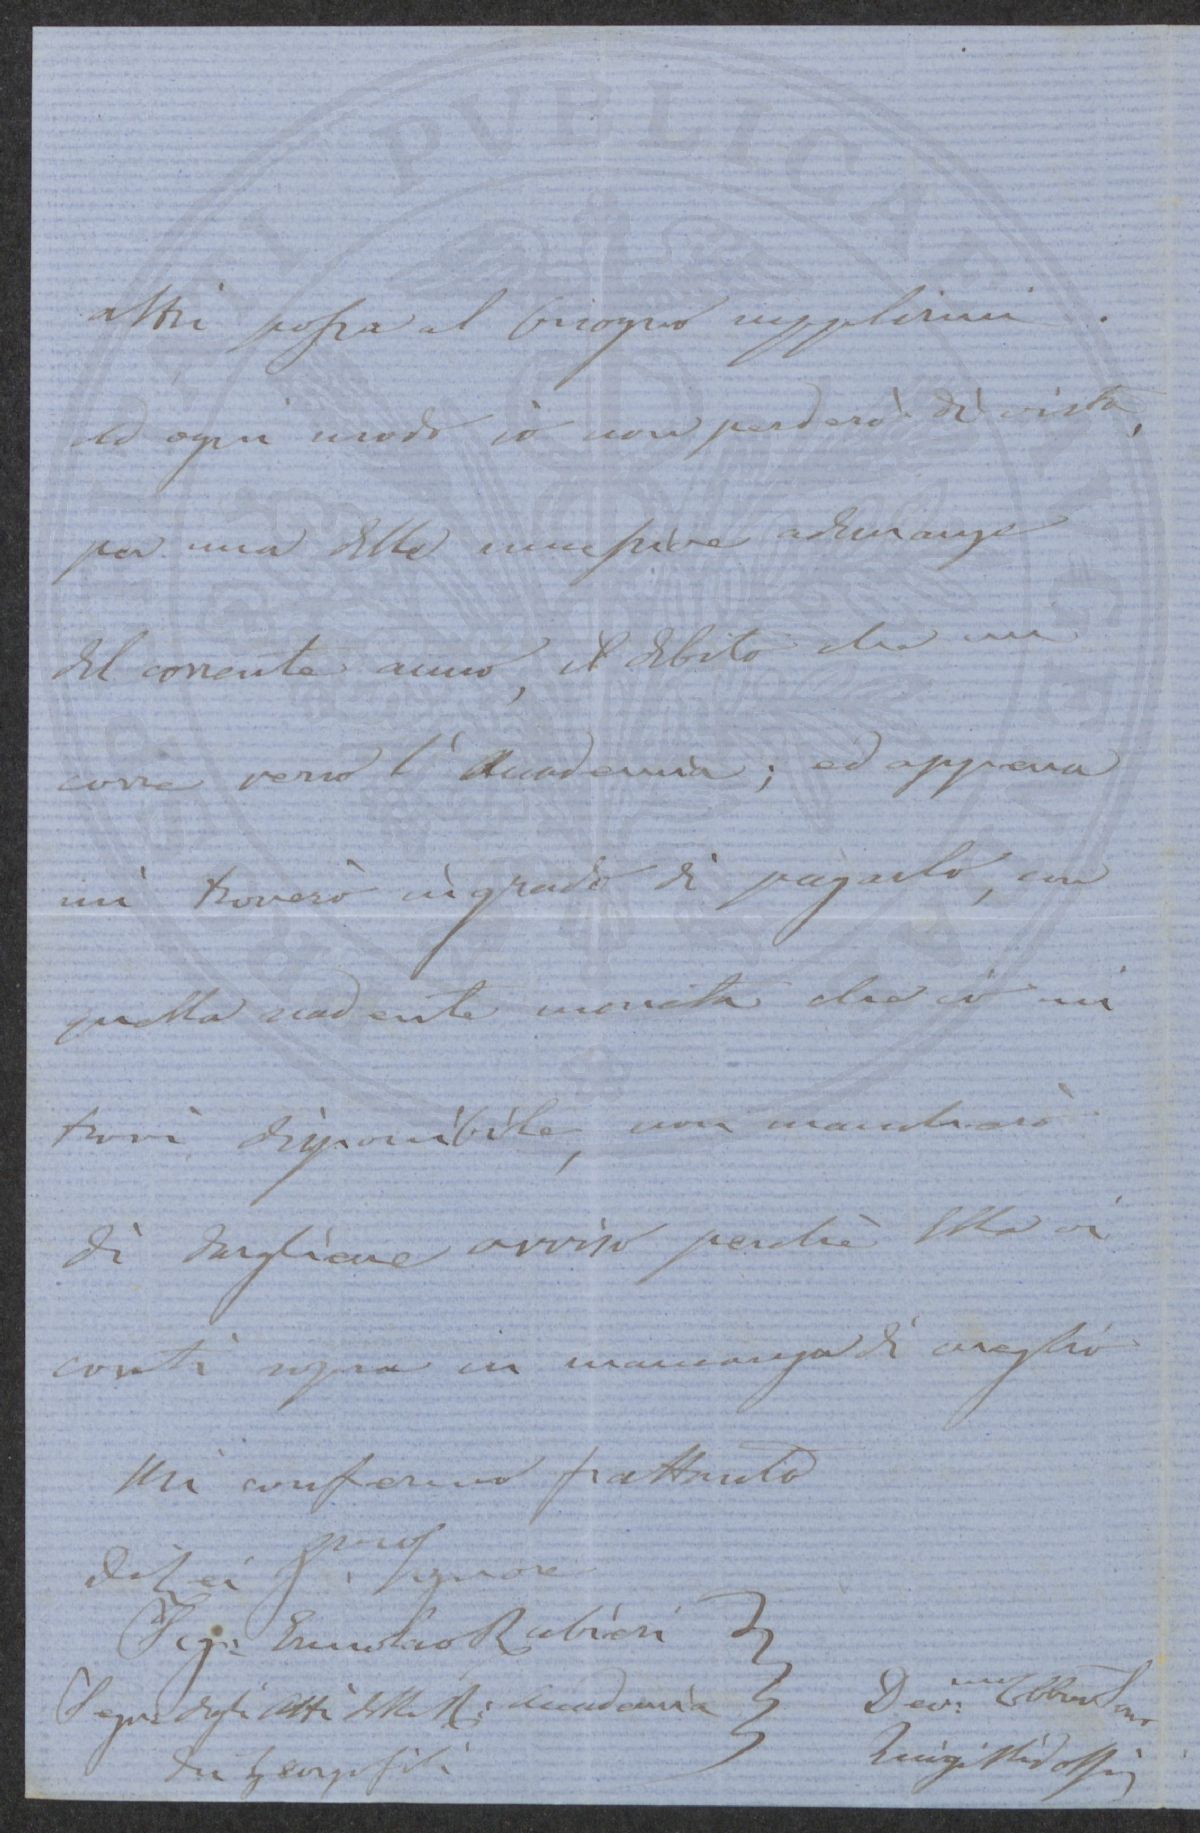 altri possa al bisogno supplirmi.
Ad ogni modo io non perderò di vista,
per una delle successive adunanze
del corrente anno, il debito che mi
corre verso l'Accademia; ed appena
mi troverò in grado di pagarlo, con
quella scadente moneta che io mi
trovi disponibile, non mancherò
di dargliene avviso perchè Ella vi
conti sopra in mancanza di meglio
Mi confermo frattanto
Di Lei Signore
Sigr. Ermolao Rubieri
Segr. degli Atti della R. Accademia
dei Georgofili
Dev.mo Obb.mo Servo
Luigi Ridolfi